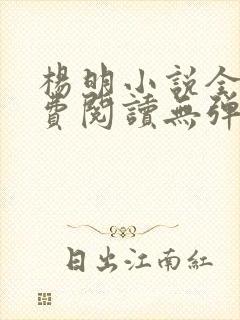 楊明小說全
費閱讀無彈
日出江南紅